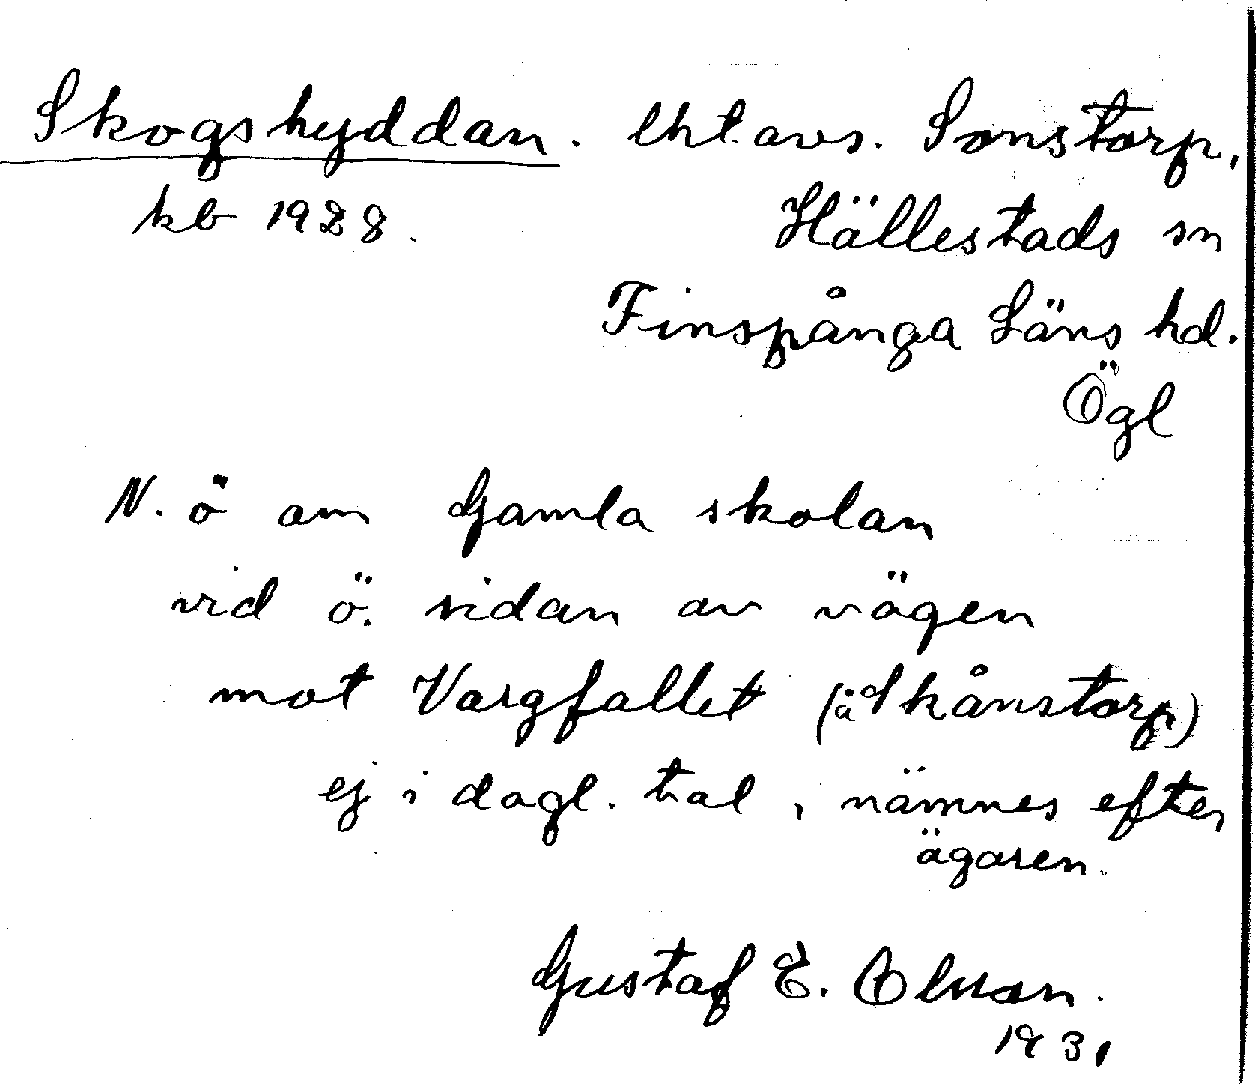 Skogshyddan. lht. avs. Sonstorp,
kb 1928. Hällestads sn
Finspånga Läns hd.
Ögl
N. ö om Gamla skolan
vid ö. sidan av vägen
mot Vargfallet (å Skånstorp)
ej i dagl. tal, nämnes efter
ägaren.
Gustaf E. Olsson.
1931